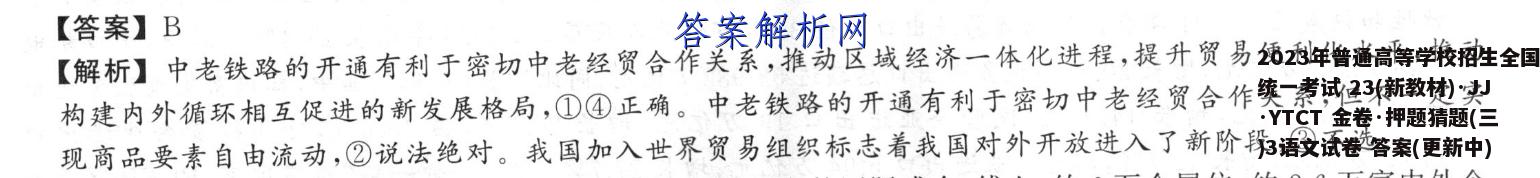 【答案】B
答案解析网
【解析】中老铁路的开通有利于密切中老经贸合作关系,推动区域经济一体化进程,提升贸易
构建内外循环相互促进的新发展格局,①④正确。中老铁路的开通有利于密切中老经贸合作
现商品要素自由流动,②说法绝对。我国加入世界贸易组织标志着我国对外开放进入了新阶段
2023年普通高等学校招生全国
统一考试 23(新教材)·JJ
·YTCT 金卷·押题猜题(三
)3语文试卷 答案(更新中)